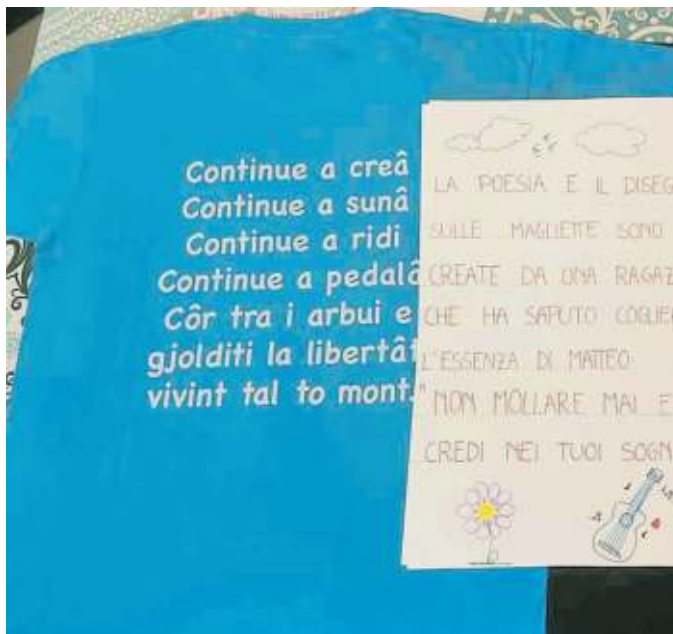 Continue a creâ
Continue a sunâ
Continue a ridi
Continue a pedalâ
Côr tra i arbui e
gjolditi la libertât
vivint tal to mont."
LA POESIA E IL DISEG
SULLE MAGLIETTE SONO
CREATE DA UNA RAGAZ
CHE HA SAPUTO COGLIE
L'ESSENZA DI MATTEO
"NON MOLLARE MAI E
CREDI NEI TUOI SOGN